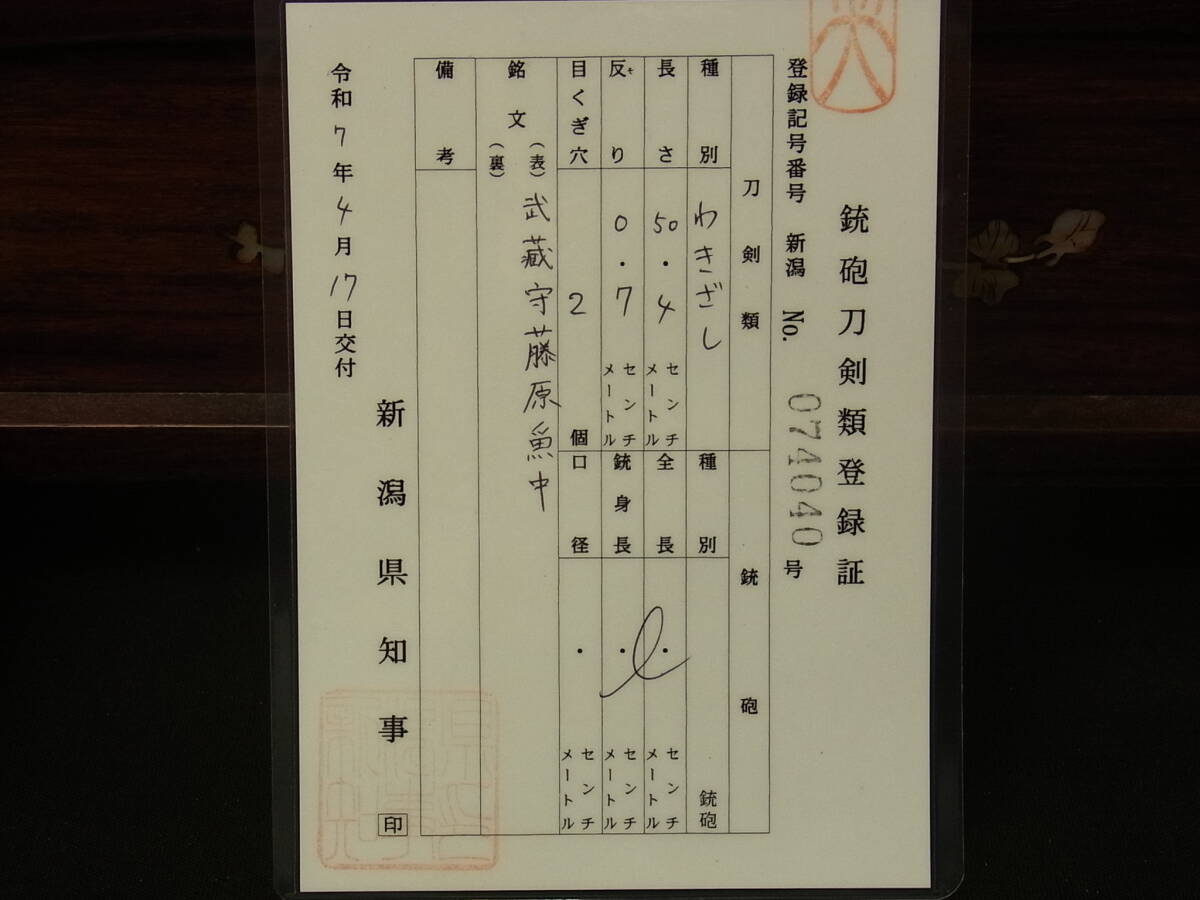 銃砲刀剣類登録証
登録記号番号 新潟 No. 074040 号
刀剣類
種別 わきざし
長さ 50.4 センチメートル
反り 0.7 センチメートル
目くぎ穴 2 個
銃砲
種別 銃砲
全長 ・ センチメートル
銃身長 ・ センチメートル
口径 ・ センチメートル
銘文
(表) 武蔵守藤原魚中
(裏)
備考
令和7年4月17日交付
新潟県知事 印